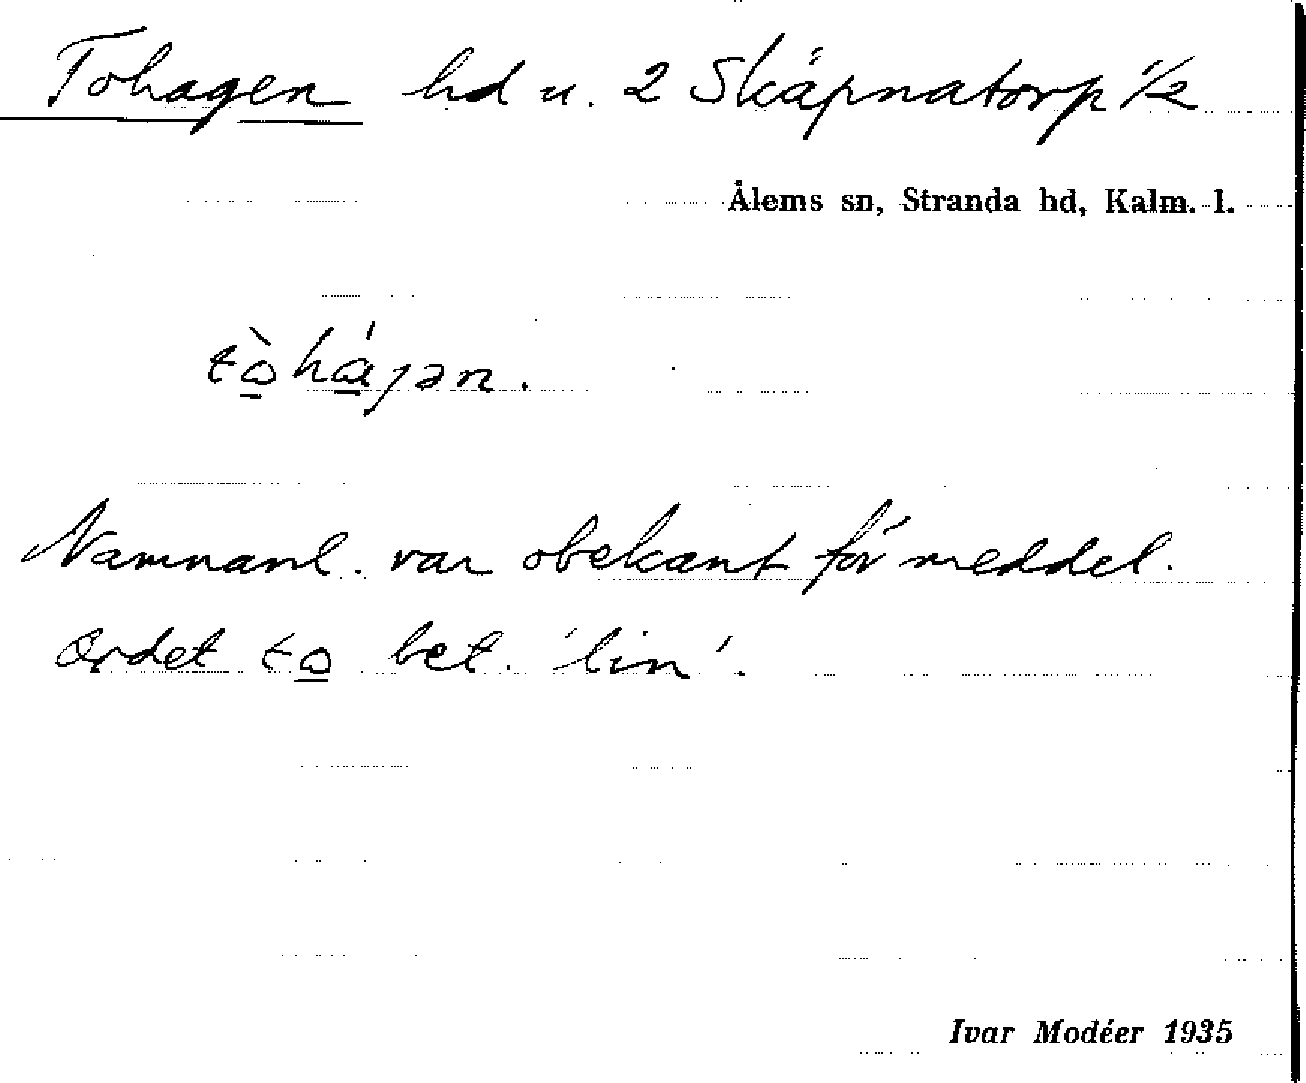 Tohagen hd u. 2 Skäpnatorp 1/2
Ålems sn, Stranda hd, Kalm. l.
tò̱há̱jən.
Namnanl. var obekant för meddel.
Ordet to̱ bet. 'lin'.
Ivar Modéer 1935